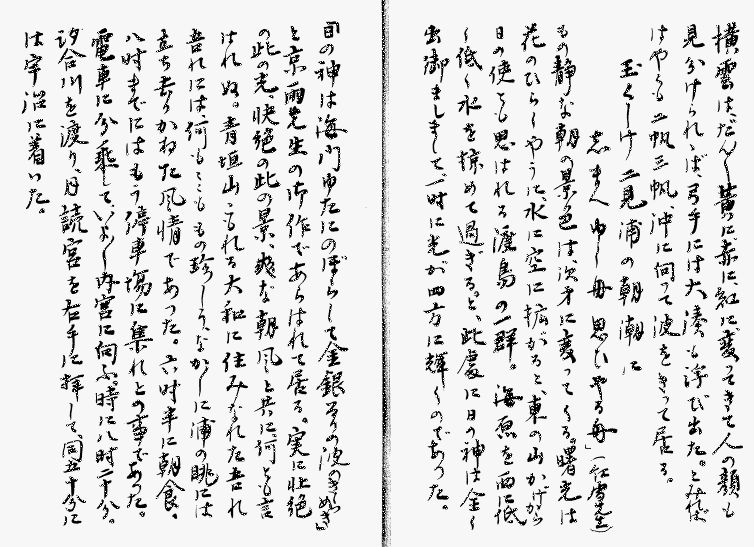 横雲はだん〱黄に赤に紅に変ってきて人の顔も
見分けられゝば、弓手には大湊も浮び出た。とみれば
はやくも二帆三帆、沖に向って波をきって居る。
玉くしけ二見浦の朝潮に
もの静な朝の景色は、次才に変ってくる。曙光は
花のひらくやうに、水に空に拡がると、東の山かげから
日の使とも思はれる渡鳥の一群。海原を西に低
く低く水を掠めて過ぎると、此處に日の神は金く
出御ましまして、一時に光が四方に輝くのであった。
「日の神は海原ゆたにのぼらして金銀の波の
と京雨先生の御作であらはれて居る。実に壮絶
の此の光、快絶の此の景、爽な朝風と共に、何とも言
はれぬ。青垣山こもれる大和に住みなれた吾れ
吾れには、何もこゝもの珍しう、なかしに浦の眺には
立ち去りかねた風情であった。六時半に朝食、
八時までにはもう停車場に集れとの事であった。
電車に分乗して、いよ〱内宮に向ふ。時に八時二十分。
汐合川を渡り、月読宮を右手に拝して、同五十分に
は宇治に着いた。